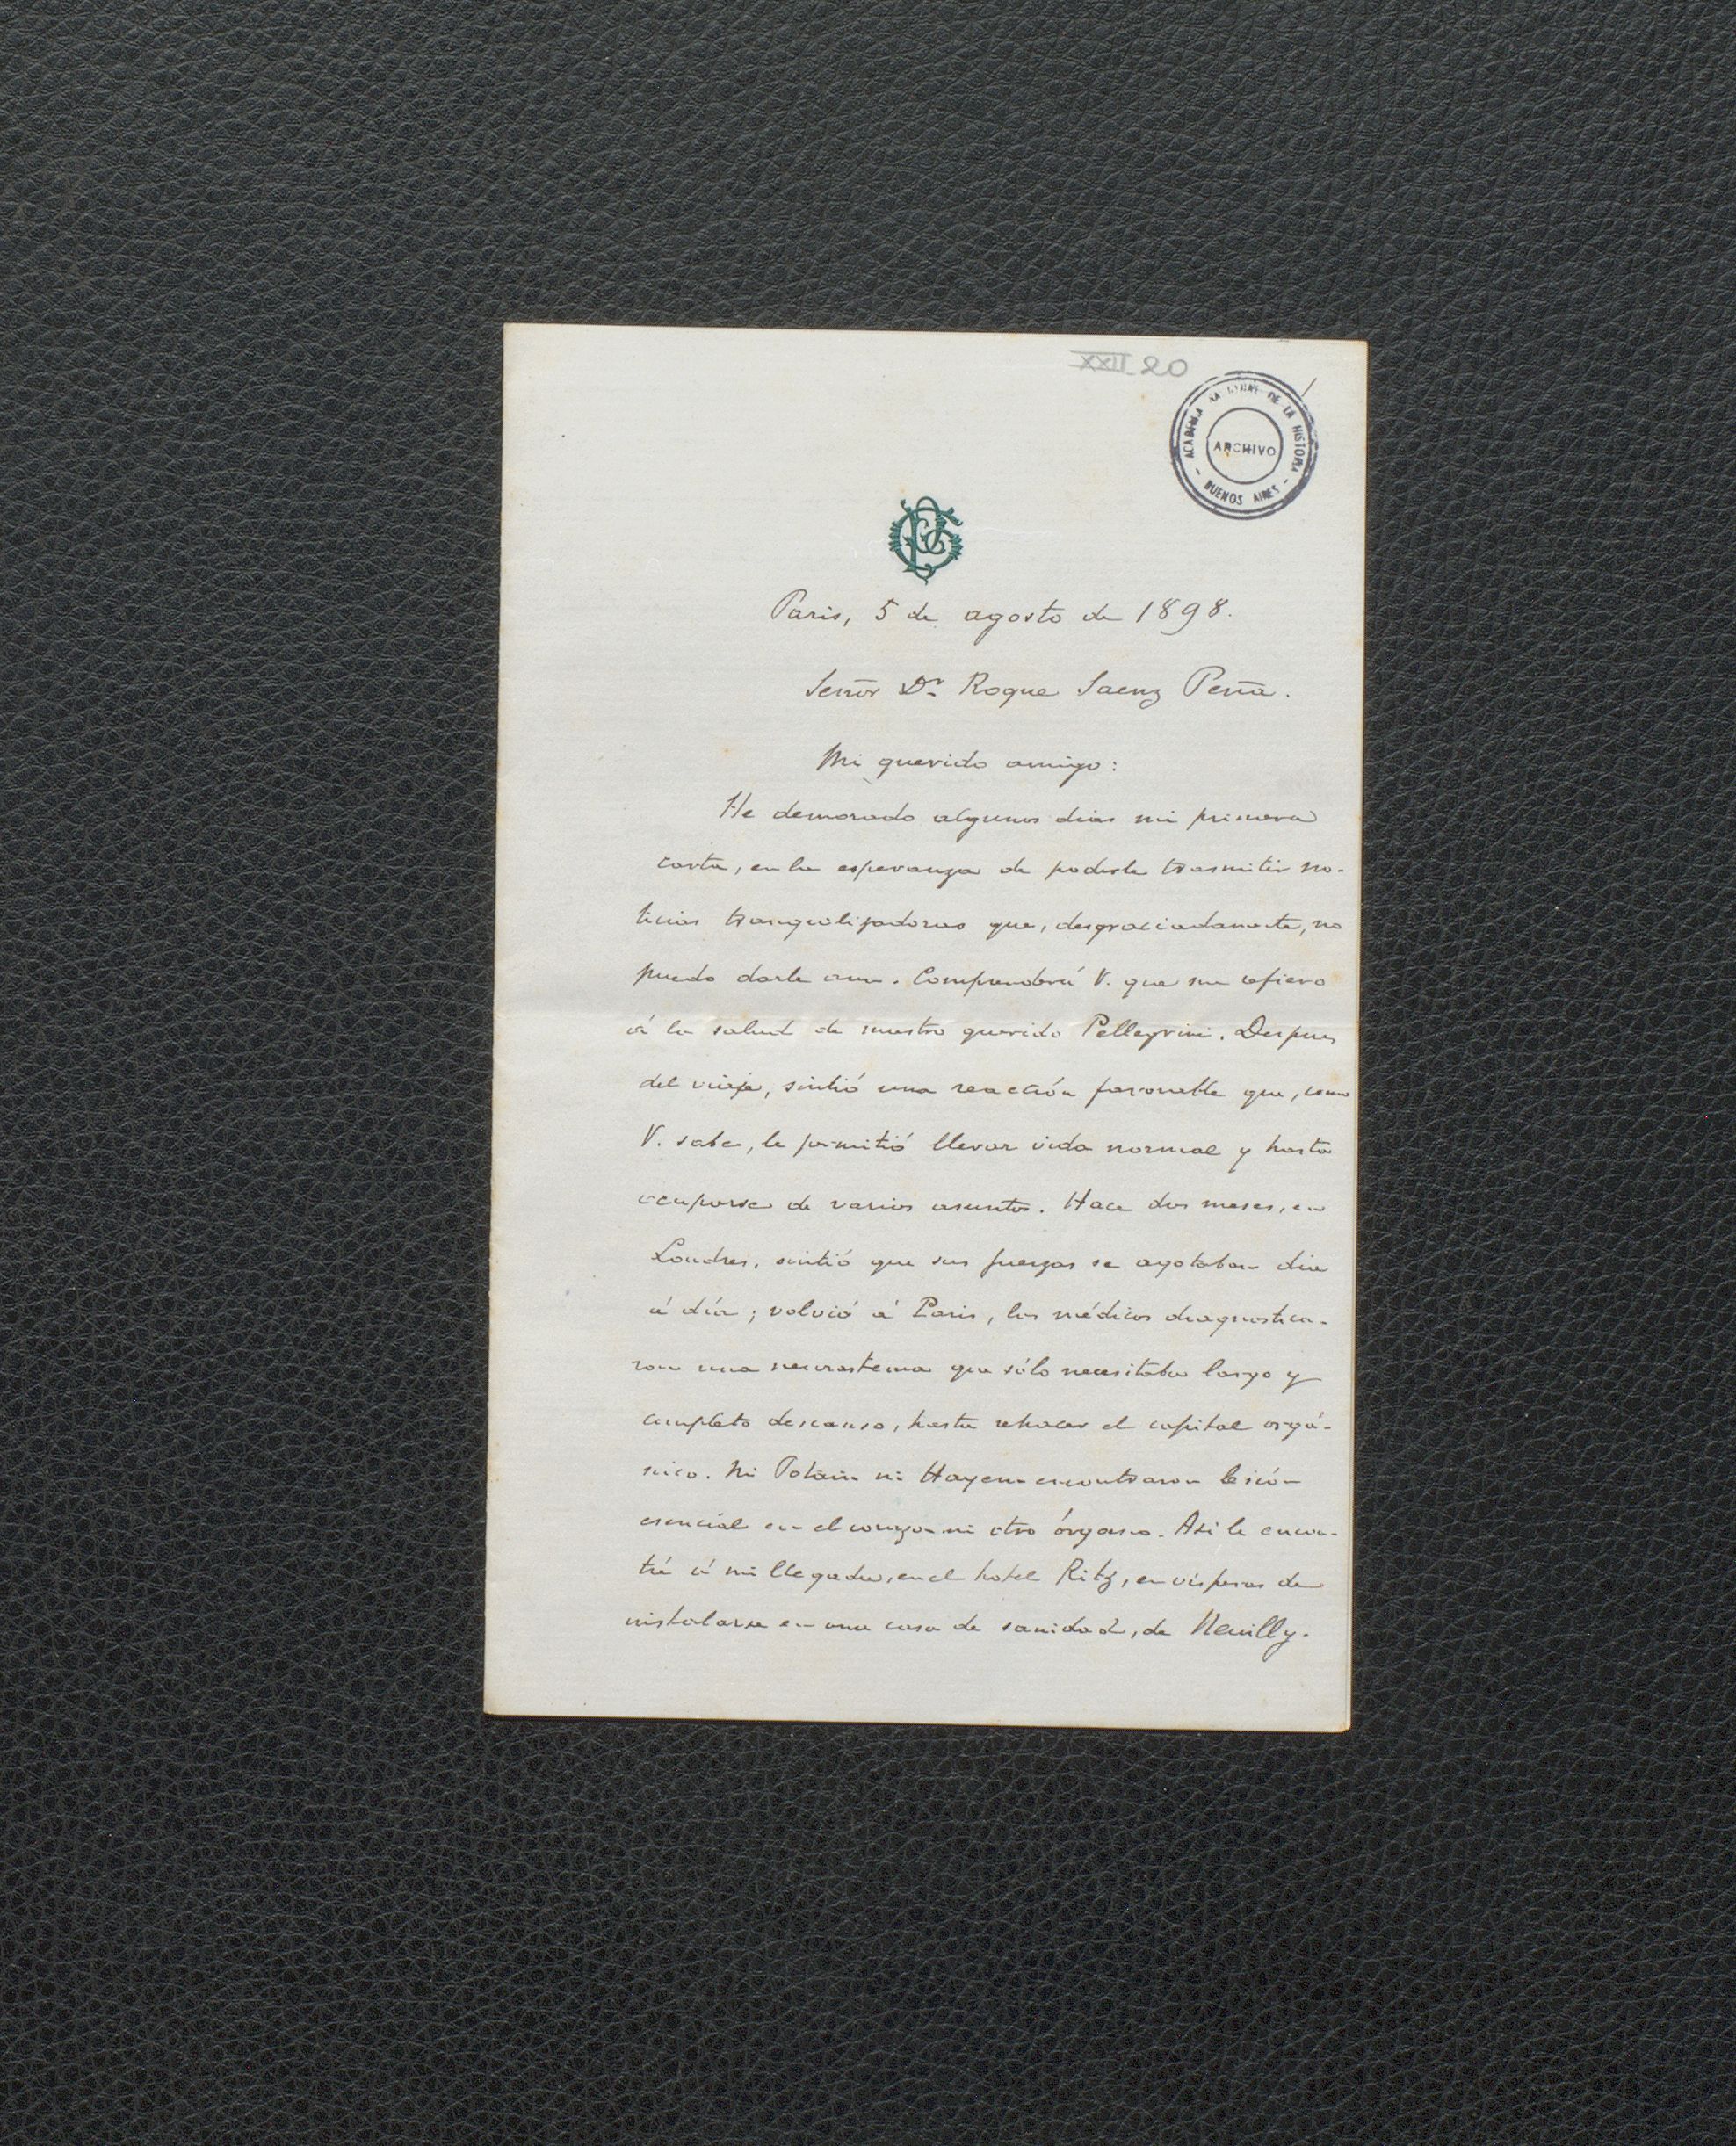 XXII 20
ACADEMIA NACIONAL DE LA HISTORIA
ARCHIVO
- BUENOS AIRES -
Paris, 5 de agosto de 1898.
Señor Dr Roque Saenz Peña.
Mi querido amigo:
He demorado algunos dias mi primera
carta, en la esperanza de poderle trasmitir no-
ticias tranquilizadoras que, desgraciadamente, no
puedo darle aun. Comprenderá V. que me refiero
á la salud de nuestro querido Pellegrini. Despues
del viaje, sintió una reacción favorable que, como
V. sabe, le permitió llevar vida normal y hasta
ocuparse de varios asuntos. Hace dos meses, en
Londres, sintió que sus fuerzas se agotaban dia
á día; volvió á Paris, los médicos diagnostica-
ron una neurastenia que sólo necesitaba largo y
completo descanso, hasta rehacer el capital orgá-
nico. Ni Potain ni Hayem encontraron lesión
esencial en el corazon ni otro órgano. Asi le encon-
tré á mi llegada, en el hotel Ritz, en visperas de
instalarse en una casa de sanidad, de Neuilly.